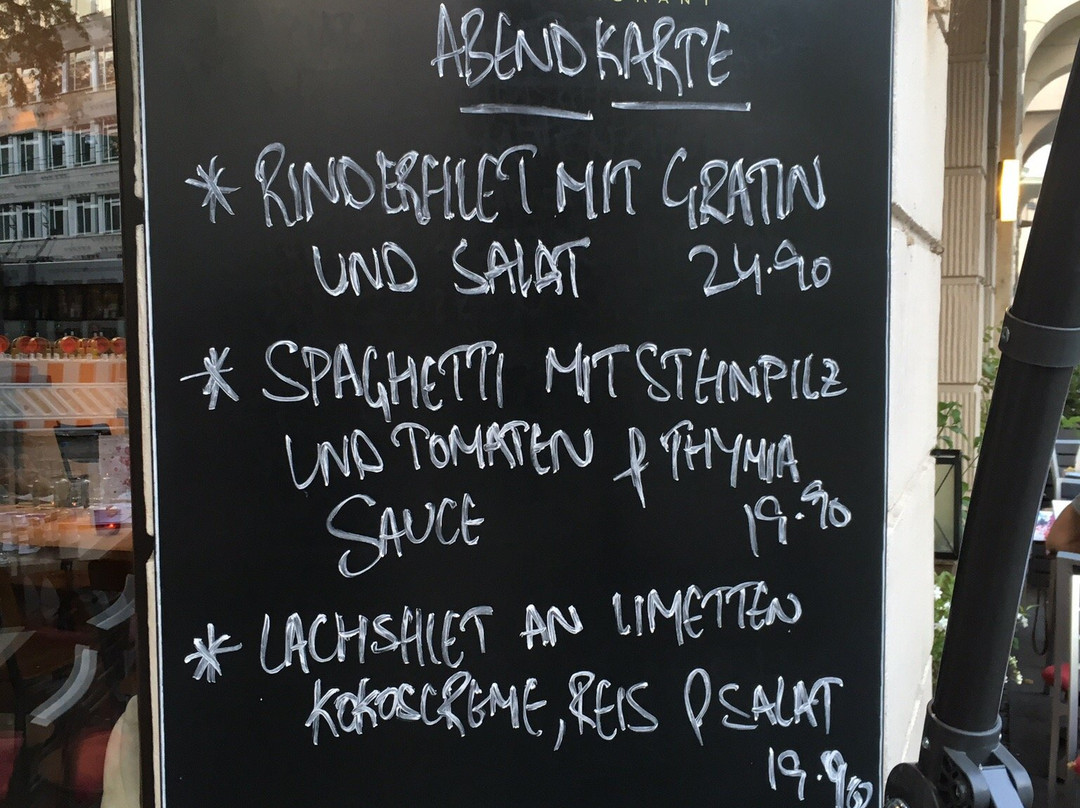 ABENDKARTE
* RINDERFILET MIT GRATIN
UND SALAT 24.90
* SPAGHETTI MIT STEINPILZ
UND TOMATEN & THYMIA
SAUCE 19.90
* LACHSFILET AN LIMETTEN
KOKOSCREME, REIS & SALAT
19.90